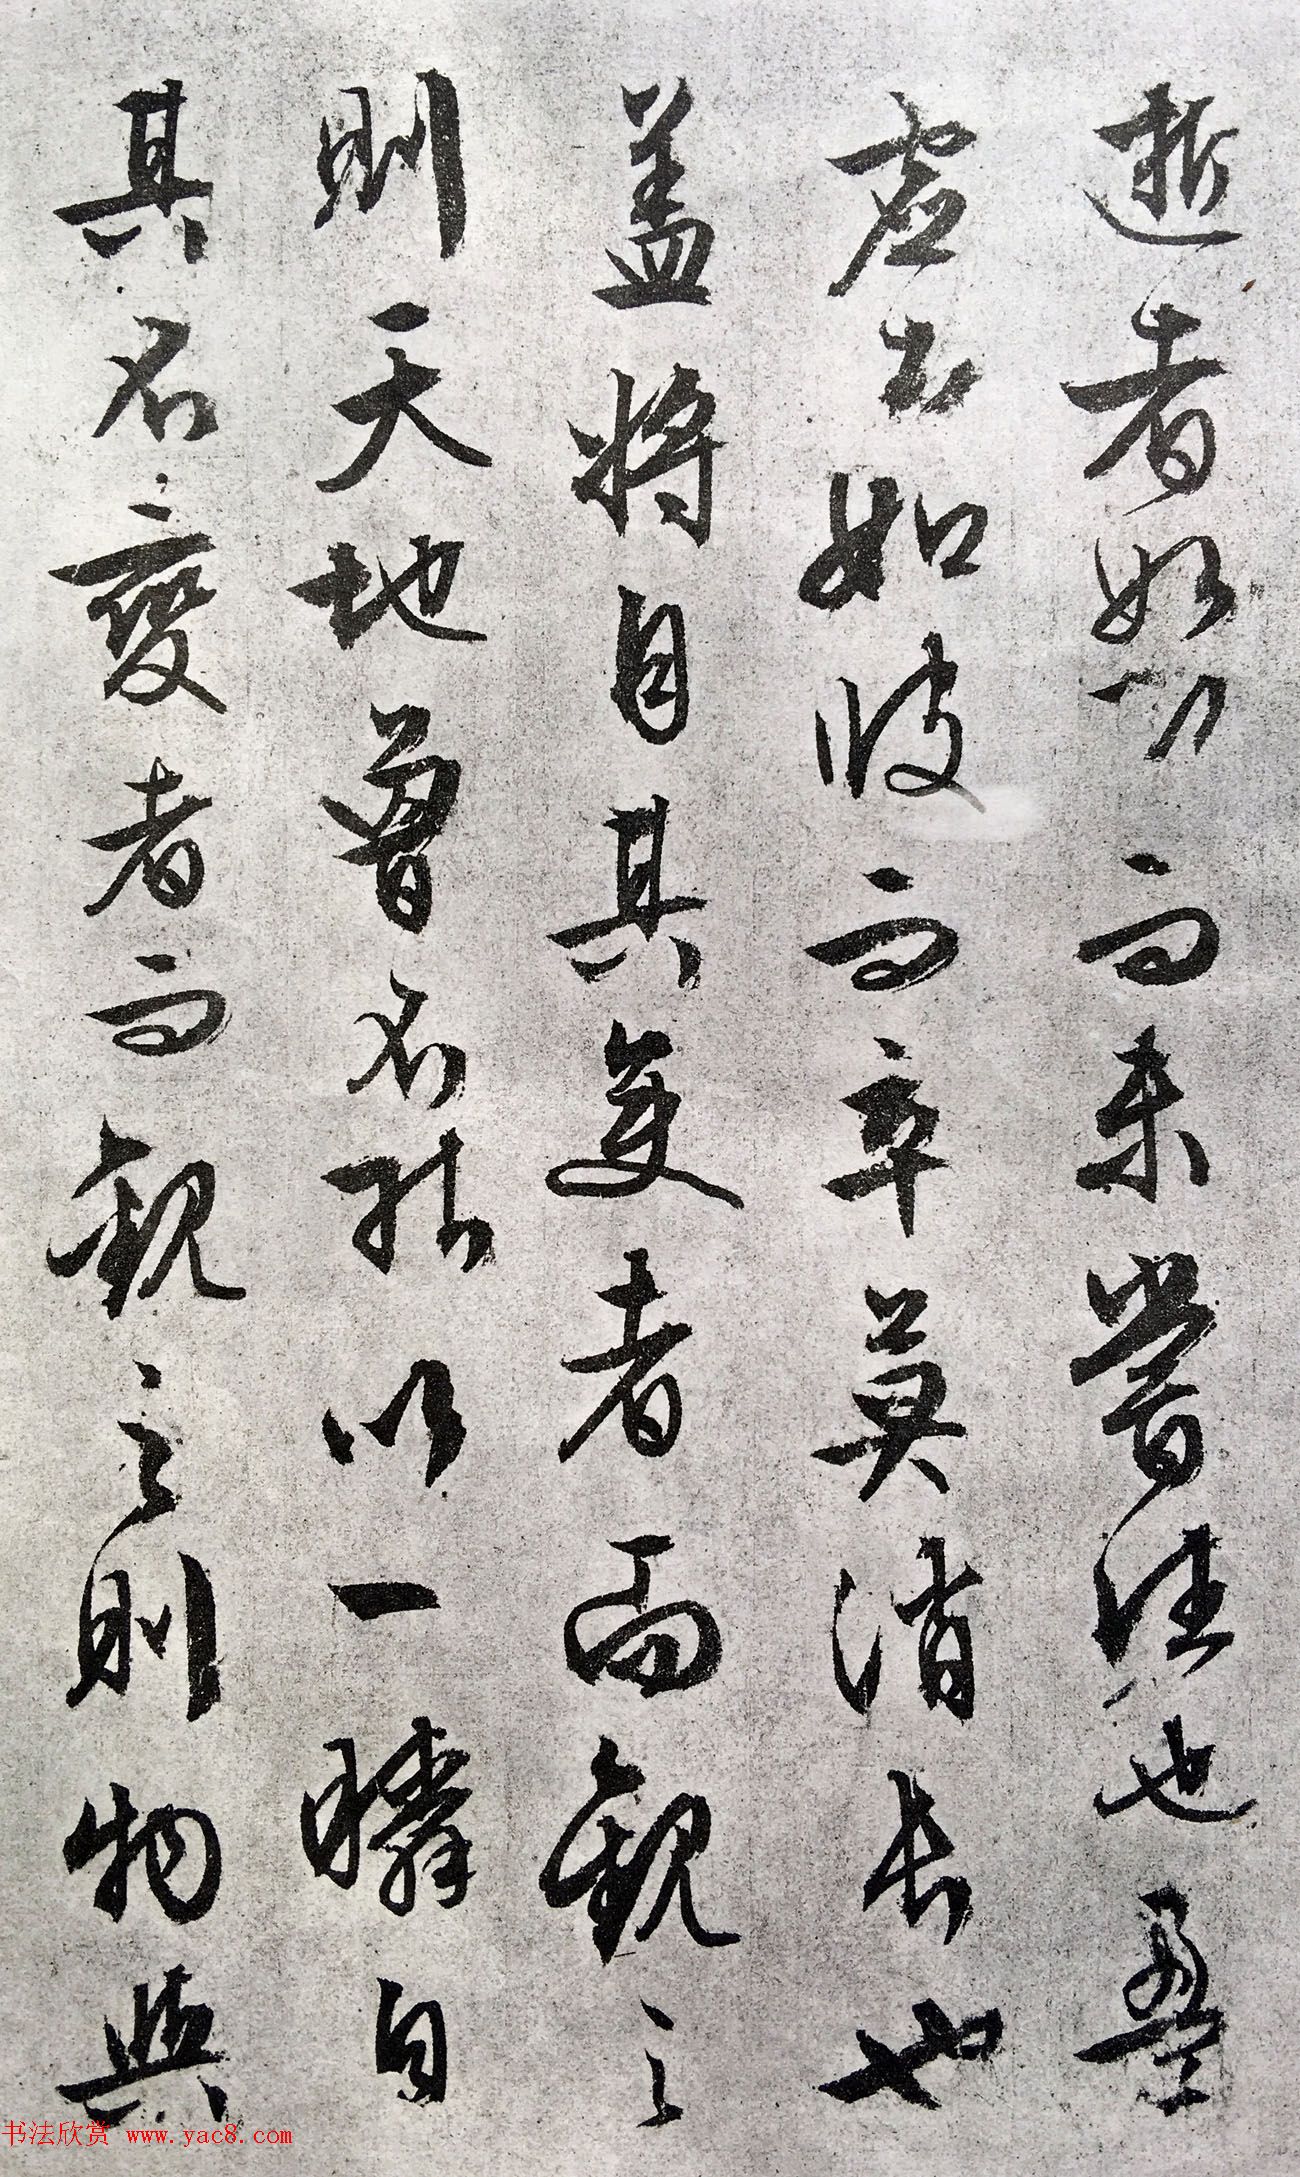 逝者如斯而未嘗往也盈
虛者如彼而卒莫消長也
盖將自其變者而觀之
則天地曾不能以一瞬自
其不變者而觀之則物與
书法欣赏 www.yac8.com